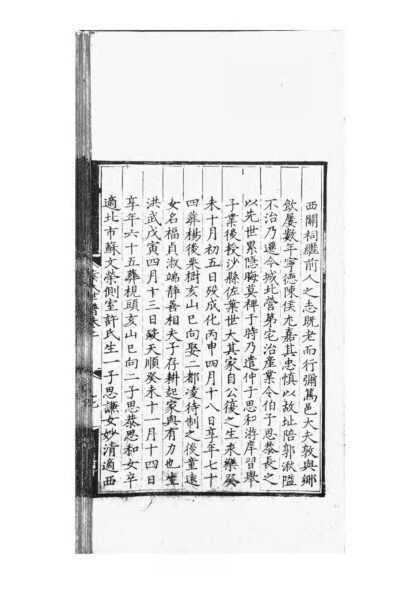 西關祠繼前人之志既老而行彌篤邑大夫敦與鄉
飲屢數年寧德陳侯尤嘉其忠慎以故址陪郭湫隘
不治乃遷今城北營第宅治產業令伯子思恭長之
以先世累隱晦莫稗子時乃遣仲子思和游庠習舉
子業後授沙縣佐葉世大其家自公後之生永樂癸
未十月初五日歿成化丙申四月十八日享年七十
四葬楊後栗樹亥山巳向娶二都淩待制之後童遠
女名福貞淑端靜善相夫子存耕起家與有力也生
洪武戊寅四月十二日歿天順癸未十一月十四日
享年六十五葬梘頭亥山巳向二子思恭思和女卒
適北市蘇文榮側室許氏生一子思謙女妙清適西